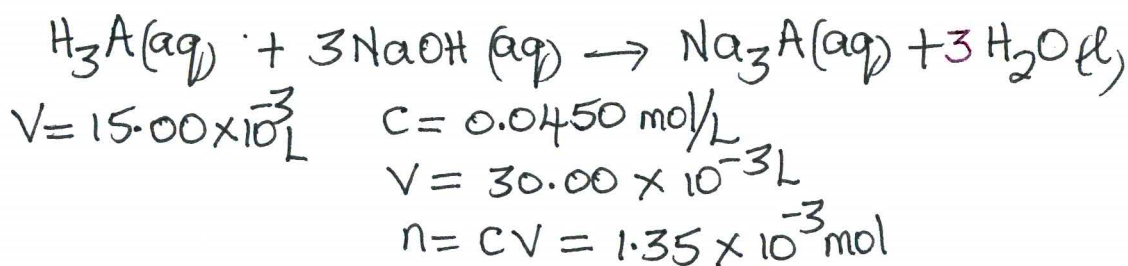 H₃A(aq) + 3NaOH (aq) → Na₃A(aq) + 3H₂O(l)
V = 15.00×10⁻³L C = 0.0450 mol/L
V = 30.00 × 10⁻³L
n = CV = 1.35 × 10⁻³ mol